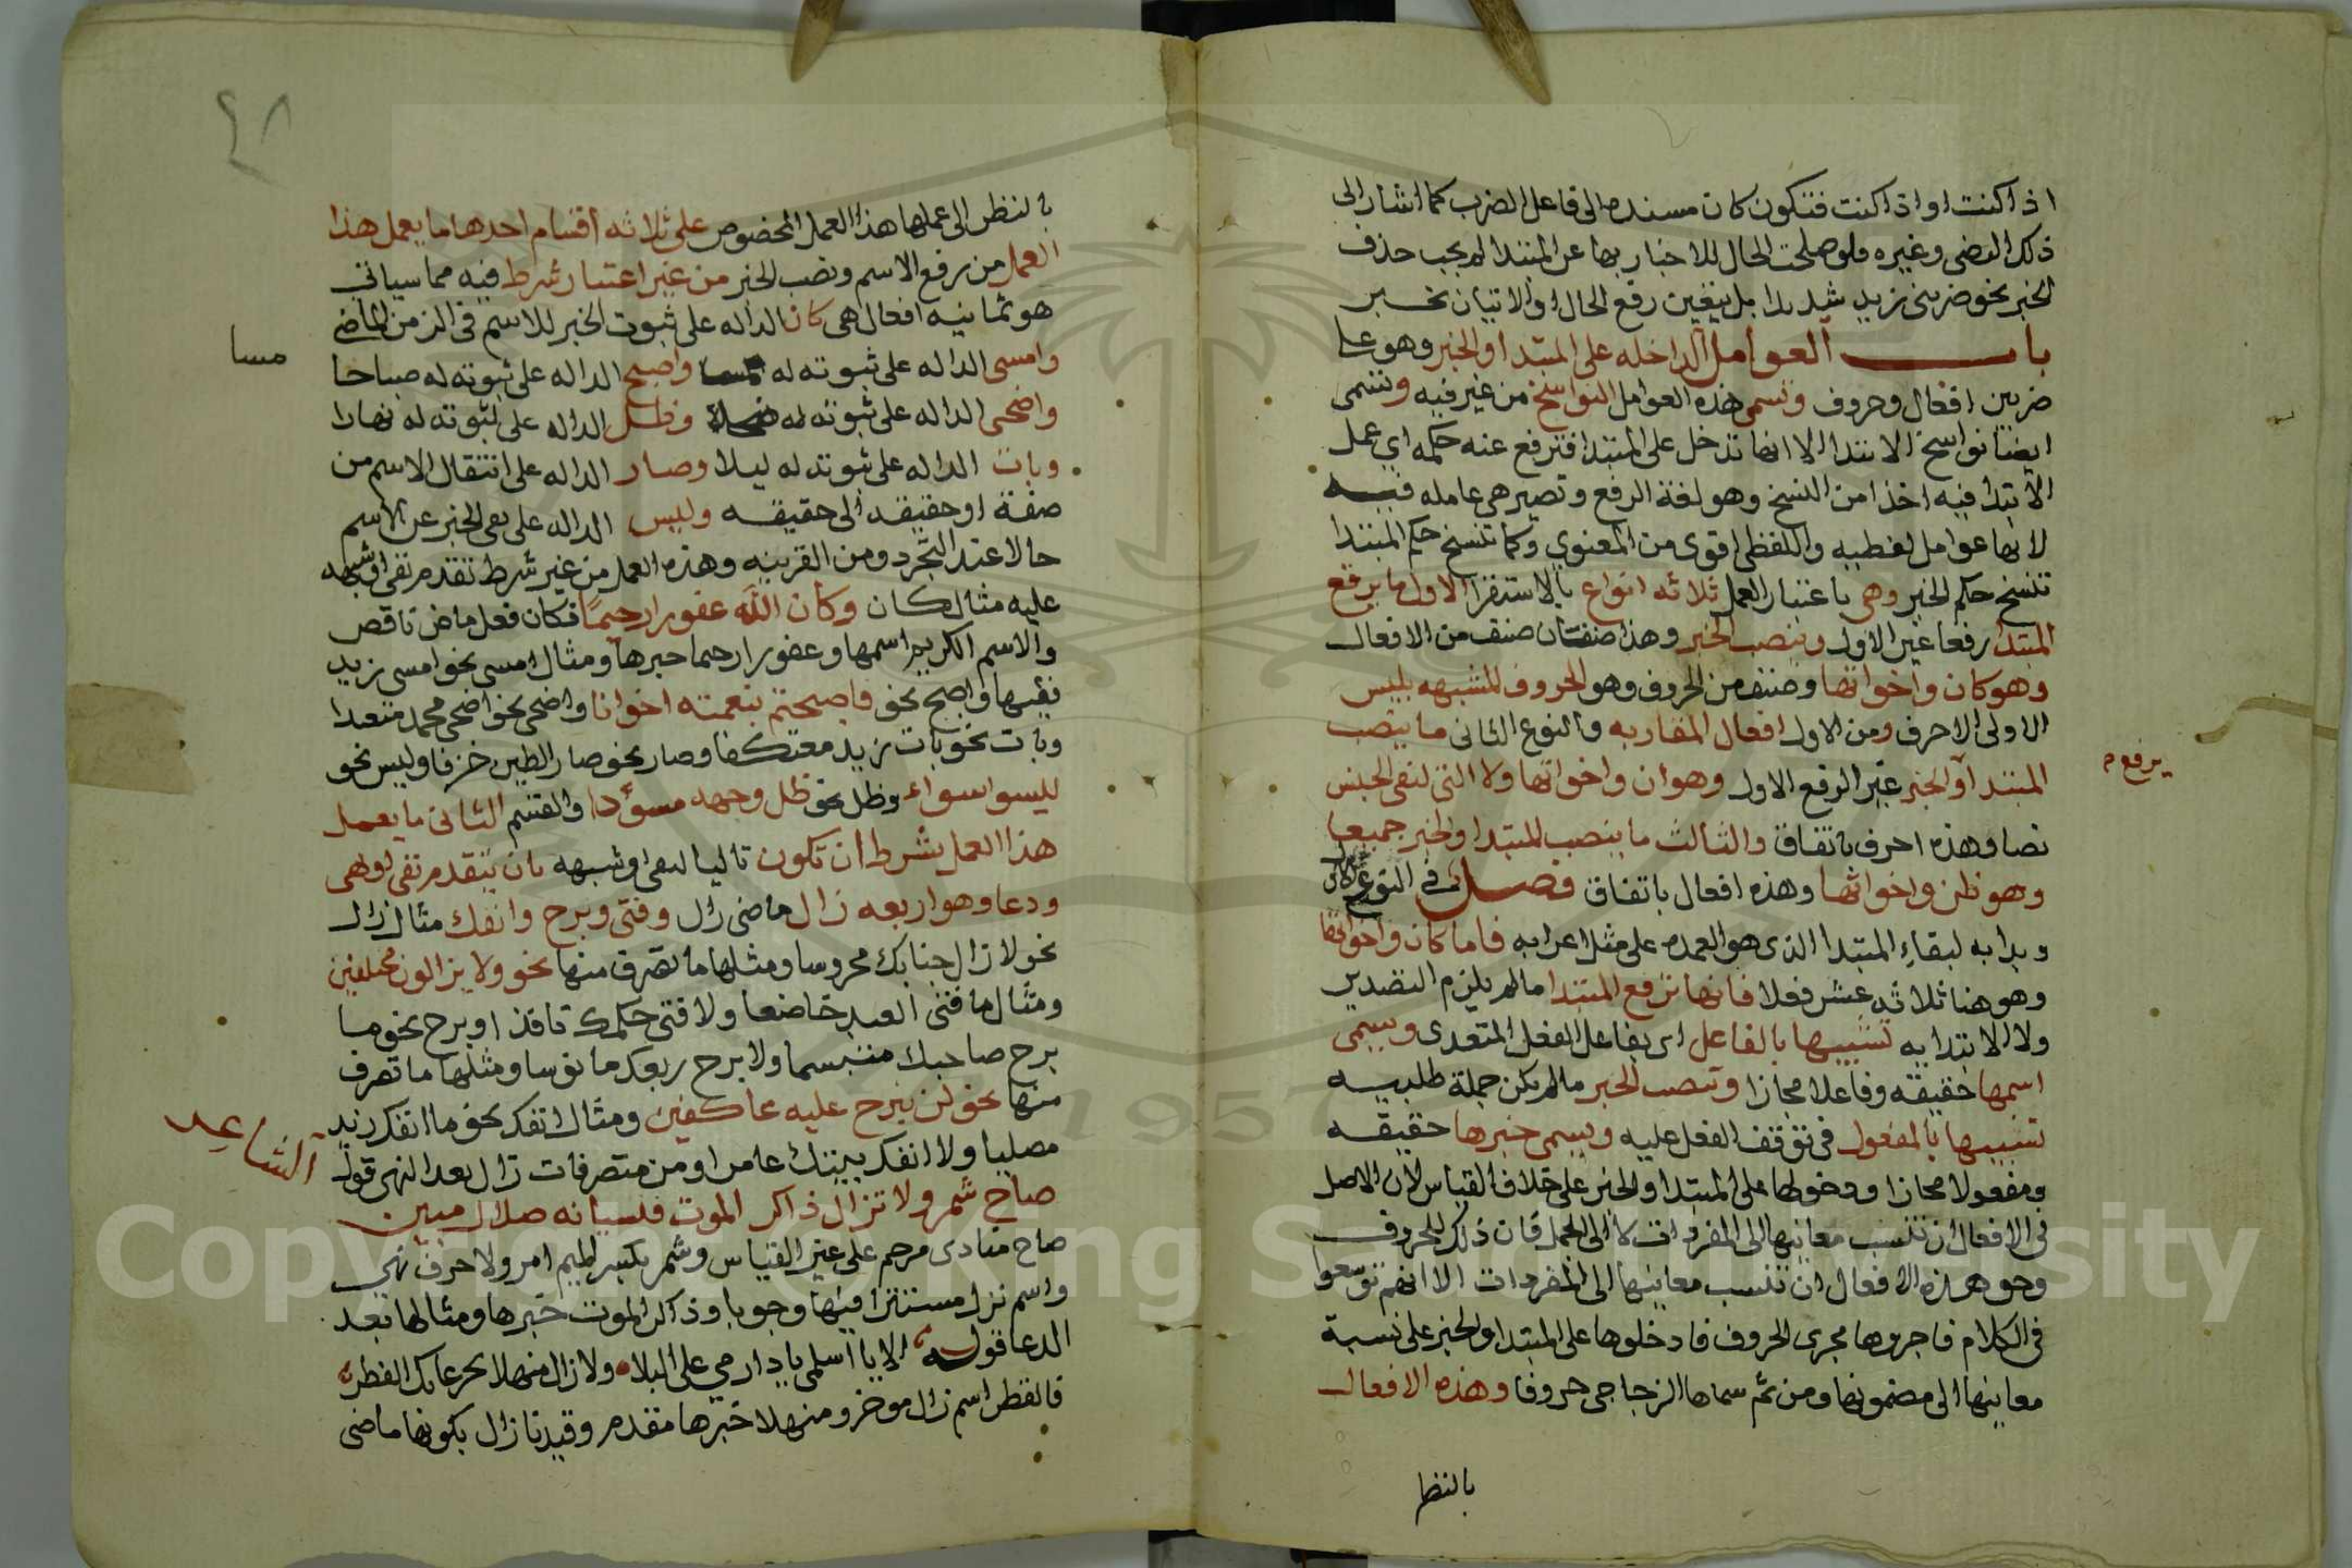 اذ اكنت او اذا كنت فتكون كان مسنده الى فاعل الضرب كما اشار الى
ذلك الرضى وغيره فلو صلحت الحال للاخبار بها عن المبتدا لم يجب حذف
الخبر نحو ضربى زيد شديدا بل يتعين رفع الحال او الاتيان بخبر
باب العوامل الداخله على المبتدا والخبر وهو على
ضربين افعال وحروف وتسمى هذه العوامل النواسخ من غير فيه وتسمى
ايضا نواسخ الابتدا الا انها تدخل على المبتدا فترفع عنه حكمه اي عمل
الابتدا فيه اخذا من النسخ وهو لغة الرفع وتصير هى عامله فيه
لانها عوامل لفظيه واللفظى اقوى من المعنوي وكما تنسخ حكم المبتدا
تنسخ حكم الخبر وهى باعتبار العمل ثلاثه انواع بالاستقرا الاول ما يرفع
المبتدا رفعا غير الاول وينصب الخبر وهذا صنفان صنف من الافعال
وهو كان واخواتها وصنف من الحروف وهو الحروف المشبهه بليس
الاولى الاحرف ومن الاول افعال المقاربه والنوع الثانى ما ينصب
المبتدا والخبر غير الرفع الاول وهو ان واخواتها ولا التى لنفى الجنس
يرفع
نصا وهذه احرف باتفاق والثالث ما ينصب المبتدا والخبر جميعا
وهو ظن واخواتها وهذه افعال باتفاق فصل فى النوع الاول
وبدا به لبقاء المبتدا الذى هو العمده على مثل اعرابه فاما كان واخواتها
وهو هنا ثلاثه عشر فعلا فانها ترفع المبتدا ما لم يلزم التصدير
ولا الابتدا به تشبيها بالفاعل اى بفاعل الفعل المتعدى ويسمى
اسمها حقيقه وفاعلا مجازا وتنصب الخبر ما لم يكن جملة طلبيه
تشبيها بالمفعول فى توقف الفعل عليه ويسمى خبرها حقيقه
ومفعولا مجازا ودخولها على المبتدا والخبر على خلاف القياس لان الاصل
فى الافعال ان تنسب معانيها الى المفردات لا الى الجمل فان ذلك للحروف
وحق هذه الافعال ان تنسب معانيها الى المفردات الا انهم توسعوا
فى الكلام فاجروها مجرى الحروف فادخلوها على المبتدا والخبر على نسبة
معانيها الى مضمونها ومن ثم سماها الزجاجى حروفا وهذه الافعال
بالنظر
٤٨
بالنظر الى عملها هذا العمل المخصوص على ثلاثه اقسام احدها ما يعمل هذا
العمل من رفع الاسم ونصب الخبر من غير اعتبار شرط فيه مما سياتى
هو ثمانيه افعال هى كان الداله على ثبوت الخبر للاسم فى الزمن الماضى
وامسى الداله على ثبوته له واصبح الداله على ثبوته له صباحا
مسا
واضحى الداله على ثبوته له وظل الداله على ثبوته له نهارا
وبات الداله على ثبوته له ليلا وصار الداله على انتقال الاسم من
صفة او حقيقه الى حقيقه وليس الداله على نفى الخبر عن الاسم
حالا عند التجرد ومن القرينه وهذه العمل من غير شرط تقدم نفى او شبهه
عليه مثال كان وكان الله غفورا رحيما فكان فعل ماض ناقص
والاسم الكريم اسمها وغفورا رحيما خبرها ومثال امسى نحو امسى زيد
فقيها واصبح نحو فاصبحتم بنعمته اخوانا واضحى نحو اضحى محمد متعبدا
وبات نحو بات زيد معتكفا وصار نحو صار الطين خزفا وليس نحو
ليسوا سواء وظل نحو ظل وجهه مسودا والقسم الثانى ما يعمل
هذا العمل بشرط ان تكون تاليا لنفى او شبهه بان يتقدم نفى او نهى
ودعا وهو اربعه زال ماضى زال وفتى وبرح وانفك مثال زال
نحو لا زال جنابك محروسا ومثلها ما تصرف منها نحو ولا يزالون مختلفين
ومثال ما فتى العبد خاضعا ولا فتى حكمك نافذا وبرح نحو ما
برح صاحبك مبتسما ولا برح ربعك مانوسا ومثلها ما تصرف
منها نحو لن نبرح عليه عاكفين ومثال انفك نحو ما انفك زيد
مصليا ولا انفك بيتك عامرا ومن متصرفات زال بعد النهى قول
الشاعر
صاح شمر ولا تزال ذاكر الموت فنسيانه ضلال مبين
صاح منادى مرخم على غير القياس وشمر بكسر الميم امر ولا حرف نهي
واسم تزل مستترا فيها وجوبا وذاكر الموت خبرها ومثالها بعد
الدعا قوله الا يا اسلمى يا دار مي على البلا ولا زال منهلا بجرعائك القطر
فالقطر اسم زال موخر ومنهلا خبرها مقدم وقيدنا زال بكونها ماضى
Copyright © King Saud University
1957